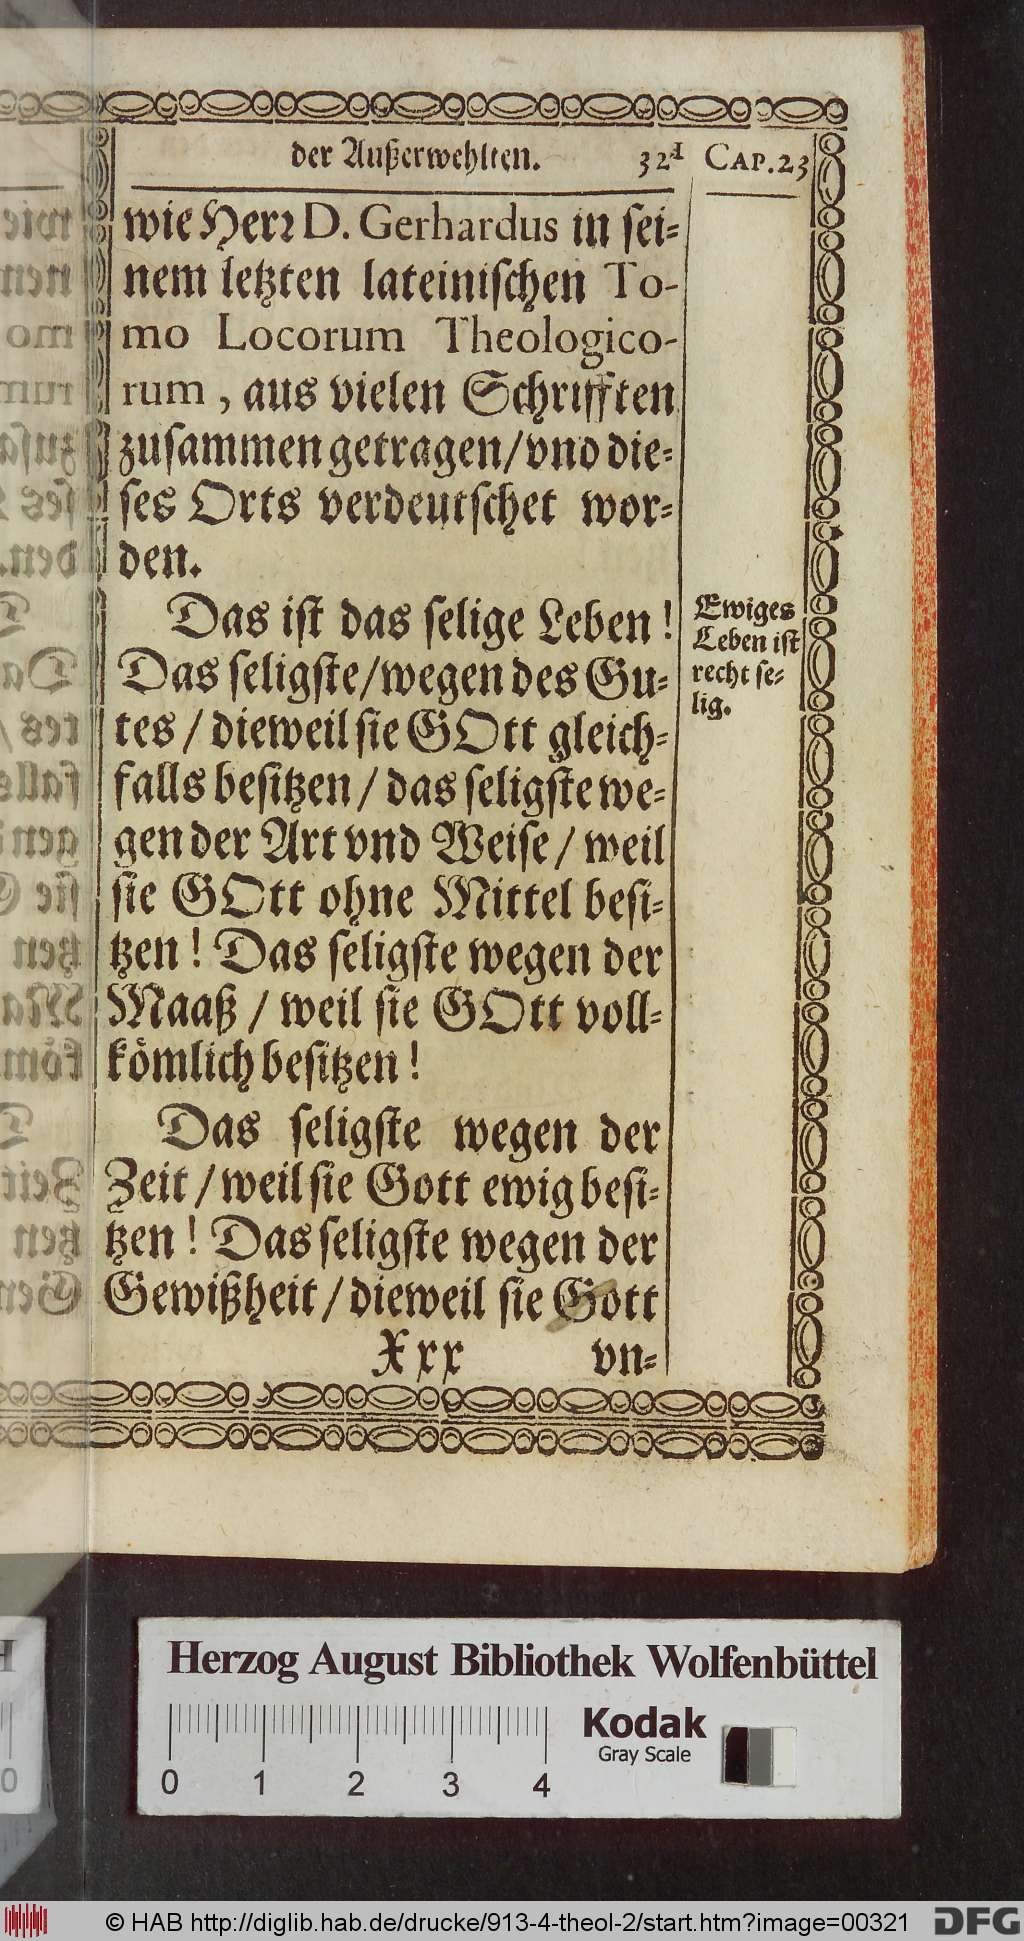 der Außerwehlten. 321 CAP. 23
wie Herꝛ D. Gerhardus in sei=
nem letzten lateinischen To-
mo Locorum Theologico-
rum, aus vielen Schrifften
zusammen getragen/vnd die=
ses Orts verdeutschet wor=
den.
Das ist das selige Leben!
Das seligste/wegen des Gu=
tes / dieweil sie GOtt gleich=
falls besitzen / das seligste we=
gen der Art vnd Weise / weil
sie GOtt ohne Mittel besi=
tzen! Das seligste wegen der
Maaß / weil sie GOtt voll=
kömlich besitzen!
Das seligste wegen der
Zeit / weil sie Gott ewig besi=
tzen! Das seligste wegen der
Gewißheit / dieweil sie Gott
Xxx vn=
Ewiges
Leben ist
recht se=
lig.
Herzog August Bibliothek Wolfenbüttel
Kodak
Gray Scale
0 1 2 3 4
© HAB http://diglib.hab.de/drucke/913-4-theol-2/start.htm?image=00321
DFG